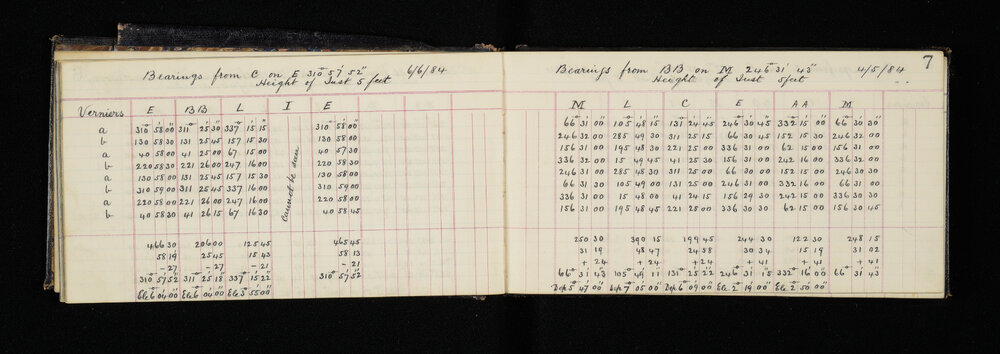 Bearings from C on E 310° 57' 52" 6/6/84
Height of Inst 5 feet
Verniers E BB L I E
a 310 58 00 311 25 30 337 15 15 310 58 00
b 130 58 30 131 25 45 157 15 30 130 58 00
a 40 58 00 41 25 00 67 15 00 40 57 30
b 220 58 30 221 26 00 247 16 00 220 58 30
a 130 58 00 131 25 45 157 15 30 130 58 00
b 310 59 00 311 25 45 337 16 00 310 59 00
a 220 58 00 221 26 00 247 16 00 220 58 00
b 40 58 30 41 26 15 67 16 30 40 58 45
cannot be seen
466 30 206 00 125 45 465 45
58 19 25 45 15 43 58 13
- 27 - 27 - 21 - 21
310° 57' 52" 311° 25' 18" 337° 15' 22" 310° 57' 52"
Ele 6° 04' 00" Ele 6° 04' 00" Ele 3° 55' 00"
7
Bearings from BB on M 246° 31' 43" 4/5/84
Height of Inst 5 feet
M L C E AA M
66 31 00 105 48 15 131 24 45 246 30 45 332 15 00 66 30 30
246 32 00 285 49 30 311 25 15 66 30 45 152 15 30 246 32 00
156 31 00 195 48 30 221 25 00 336 31 00 62 15 00 156 31 00
336 32 00 15 49 45 41 25 30 156 31 00 242 16 00 336 32 00
246 31 00 285 48 30 311 25 00 66 30 00 152 15 00 246 30 30
66 31 30 105 49 00 131 25 00 246 31 00 332 16 00 66 31 00
336 31 00 15 48 00 41 24 15 156 29 30 242 15 00 336 30 30
156 31 00 195 48 45 221 25 00 336 30 30 62 15 00 156 30 45
250 30 390 15 199 45 244 30 122 30 248 15
31 19 48 47 24 58 30 34 15 19 31 02
+ 24 + 24 + 24 + 41 + 41 + 41
66° 31' 43" 105° 49' 11" 131° 25' 22" 246° 31' 15" 332° 16' 00" 66° 31' 43"
Dep 5° 47' 00" Dep 7° 05' 00" Dep 6° 09' 00" Ele 2° 19' 00" Ele 2° 50' 00"